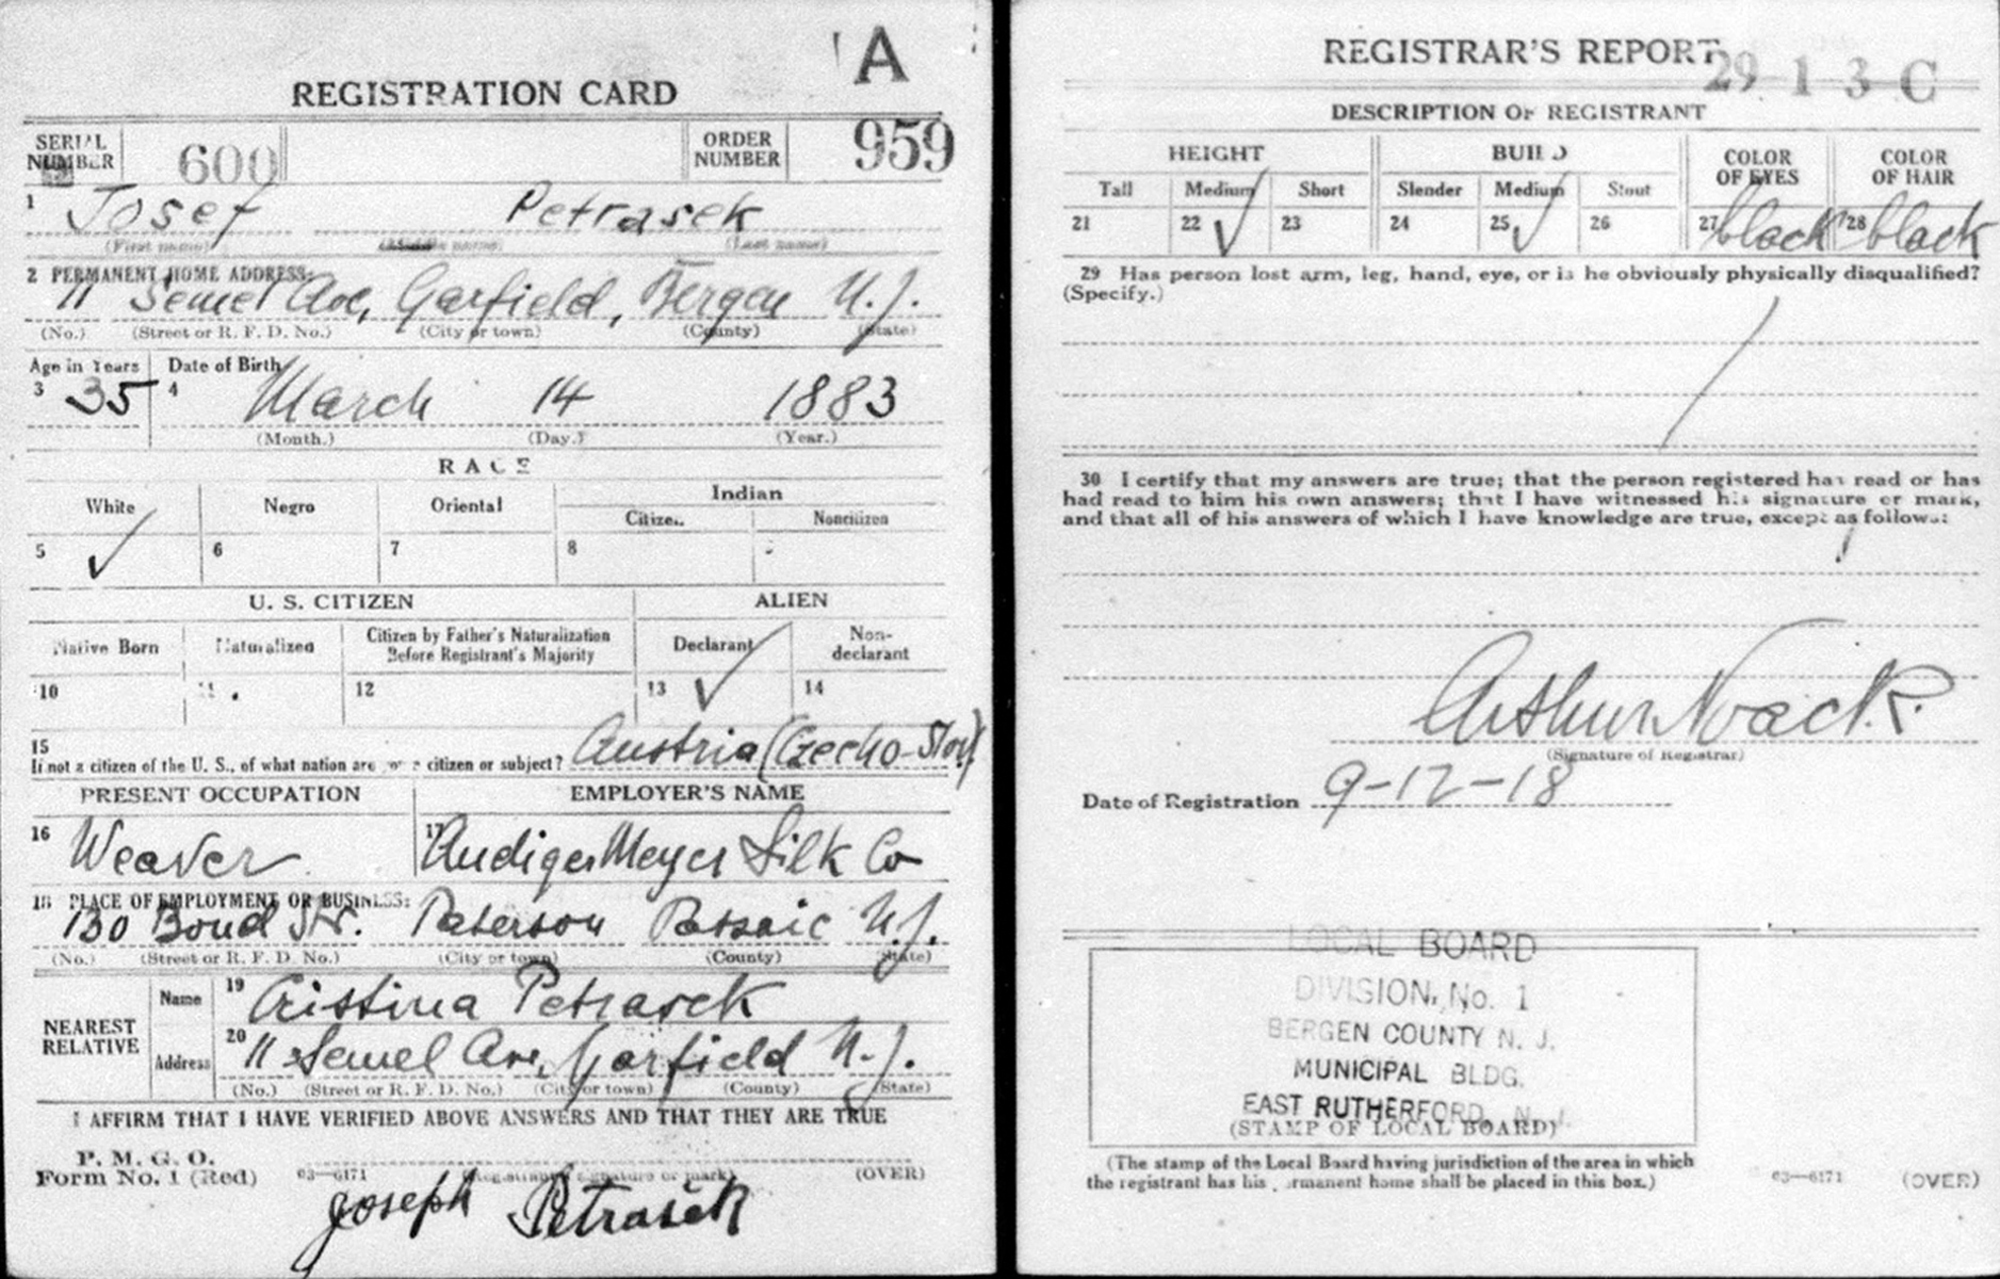 A
REGISTRATION CARD
SERIAL NUMBER 600 ORDER NUMBER 959
1 Josef Petrasek
(First name) (Middle name) (Last name)
2 PERMANENT HOME ADDRESS:
11 Semel Ave, Garfield, Bergen N.J.
(No.) (Street or R. F. D. No.) (City or town) (County) (State)
Age in Years Date of Birth
3 35 4 March 14 1883
(Month.) (Day.) (Year.)
RACE
White Negro Oriental Indian
Citizen Noncitizen
5 ✓ 6 7 8
U. S. CITIZEN ALIEN
Native Born Naturalized Citizen by Father's Naturalization Before Registrant's Majority Declarant Non-declarant
10 11 12 13 ✓ 14
15
If not a citizen of the U. S., of what nation are you a citizen or subject? Austria (Czecho-Slov)
PRESENT OCCUPATION EMPLOYER'S NAME
16 Weaver 17 Audiger Meyer Silk Co
18 PLACE OF EMPLOYMENT OR BUSINESS:
130 Bond Str. Paterson Passaic N.J.
(No.) (Street or R. F. D. No.) (City or town) (County) (State)
NEAREST RELATIVE
Name 19 Cristina Petrasek
Address 20 11 Semel Ave, Garfield N.J.
(No.) (Street or R. F. D. No.) (City or town) (County) (State)
I AFFIRM THAT I HAVE VERIFIED ABOVE ANSWERS AND THAT THEY ARE TRUE
P. M. G. O.
Form No. 1 (Red) 03—6171 (Registrant's signature or mark) (OVER)
Joseph Petrašek
REGISTRAR'S REPORT
29 1 3 C
DESCRIPTION OF REGISTRANT
HEIGHT BUILD COLOR OF EYES COLOR OF HAIR
Tall Medium Short Slender Medium Stout
21 22 ✓ 23 24 25 ✓ 26 27 black 28 black
29 Has person lost arm, leg, hand, eye, or is he obviously physically disqualified?
(Specify.)
30 I certify that my answers are true; that the person registered has read or has
had read to him his own answers; that I have witnessed his signature or mark,
and that all of his answers of which I have knowledge are true, except as follows:
Arthur Noack.
(Signature of Registrar)
Date of Registration 9-12-18
LOCAL BOARD
DIVISION, No. 1
BERGEN COUNTY N. J.
MUNICIPAL BLDG.
EAST RUTHERFORD, N. J.
(STAMP OF LOCAL BOARD)
(The stamp of the Local Board having jurisdiction of the area in which
the registrant has his permanent home shall be placed in this box.)
03—6171 (OVER)